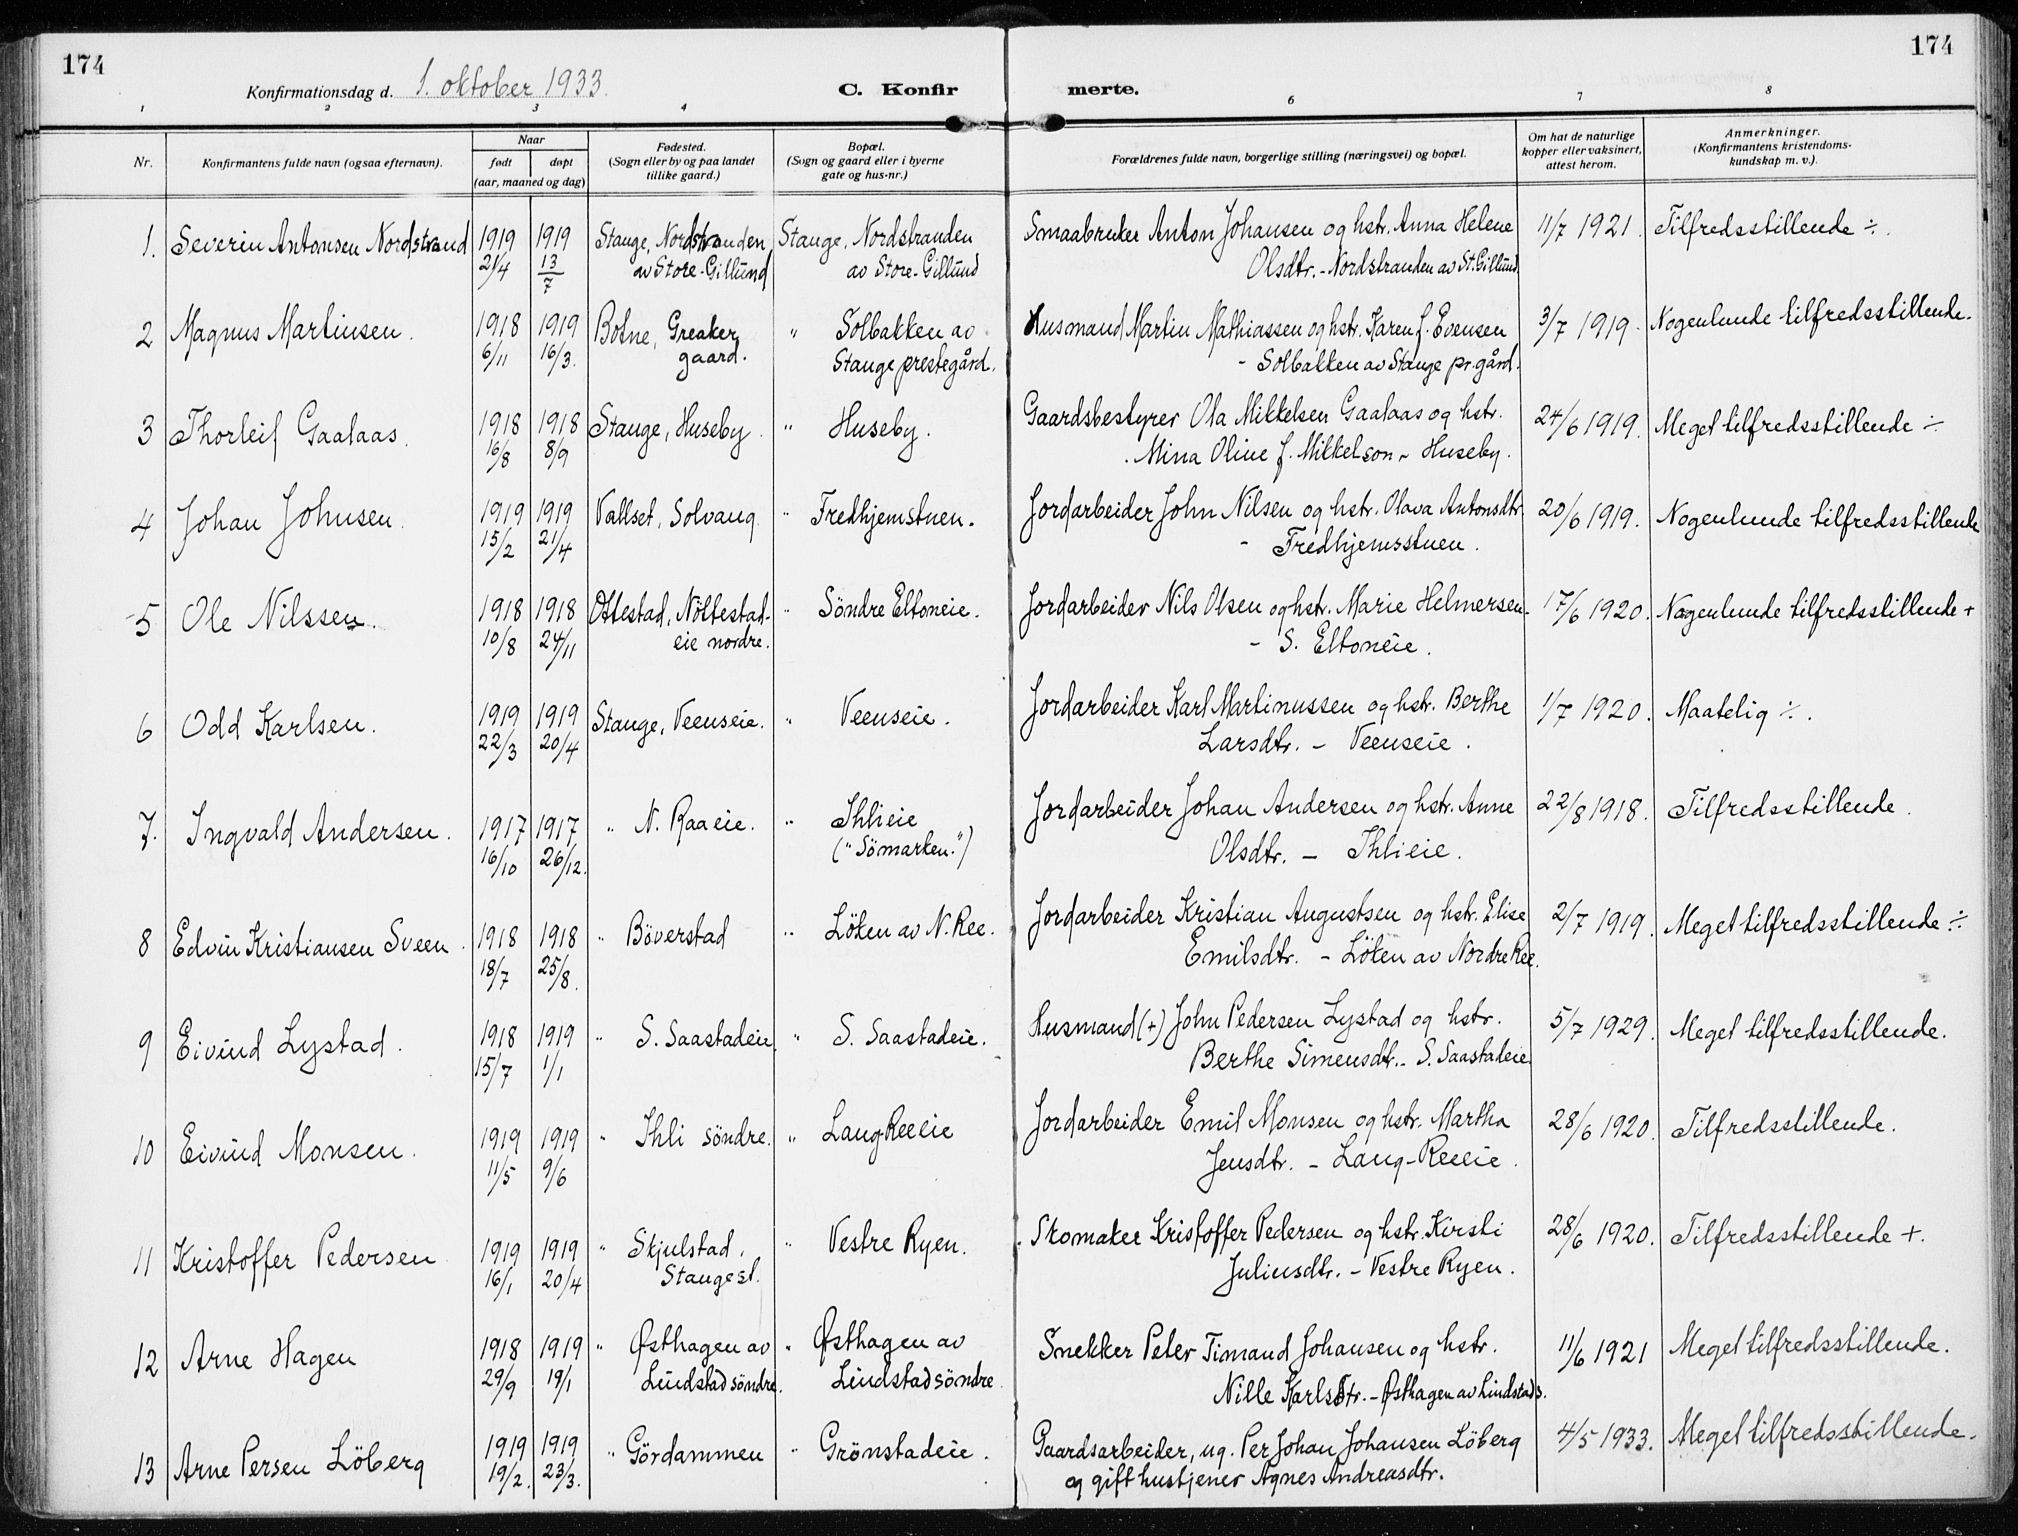 174
174
Konfirmationsdag d. 1. oktober 1933.
C. Konfir
merte.
1 2 3 4 6 7 8
Nr.
Konfirmantens fulde navn (ogsaa efternavn).
Naar
født
døpt
(aar, maaned og dag)
Fødested.
(Sogn eller by og paa landet
tillike gaard.)
Bopæl.
(Sogn og gaard eller i byerne
gate og hus-nr.)
Forældrenes fulde navn, borgerlige stilling (næringsvei) og bopæl.
Om hat de naturlige
kopper eller vaksinert,
attest herom.
Anmerkninger.
(Konfirmantens kristendoms-
kundskap m. v.).
1. Severin Antonsen Nordstrand 1919 1919 Stange, Nordstranden Stange, Nordstranden Smaabruker Anton Johansen og hstr. Anna Helene 11/7 1921. Tilfredsstillende ÷.
21/4 13/7 av Store-Gillund av Store-Gillund Olsdtr. - Nordstranden av St. Gillund.
2 Magnus Martinsen. 1918 1919 Botne, Greaker " Solbakken av Husmand Martin Mathiassen og hstr. Karen f. Evensen 3/7 1919. Nogenlunde tilfredsstillende.
6/11 16/3. gaard. Stange prestegård. - Solbakken av Stange pr.gård.
3 Thorleif Gaalaas. 1918 1918 Stange, Huseby. " Huseby. Gaardsbestyrer Ola Mikkelsen Gaalaas og hstr. 24/6 1919. Meget tilfredsstillende ÷
16/8 8/9 Mina Oline f. Mikkelson - Huseby.
4 Johan Johnsen. 1919 1919 Vallset, Solvang. " Fredhjemstuen. Jordarbeider John Nilsen og hstr. Olava Antonsdtr. 20/6 1919. Nogenlunde tilfredsstillende
15/2 21/4 - Fredhjemsstuen.
5 Ole Nilssen. 1918 1918 Ottestad, Nöttestad- " Söndre Eltoneie. Jordarbeider Nils Olsen og hstr. Marie Helmersen- 17/6 1920. Nogenlunde tilfredsstillende +
10/8 24/11 eie nordre. - S. Eltoneie.
6 Odd Karlsen. 1919 1919 Stange, Veenseie. " Veenseie. Jordarbeider Karl Martinussen og hstr. Berthe 1/7 1920. Maatelig ÷.
22/3 20/4 Larsdtr. - Veenseie.
7. Ingvald Andersen. 1917 1917 " N. Raaeie. " Ihlieie Jordarbeider Johan Andersen og hstr. Anne 22/8 1918. Tilfredsstillende.
16/10 26/12. ("Sömarken.") Olsdtr. - Ihlieie.
8 Edvin Kristiansen Sveen. 1918 1918 " Böverstad " Löken av N. Ree. Jordarbeider Kristian Augustsen og hstr. Elise 2/7 1919. Meget tilfredsstillende ÷
18/7 25/8. Emilsdtr. - Löken av Nordre Ree.
9 Eivind Lystad. 1918 1919 " S. Saastadeie. " S. Saastadeie. Husmand (+) John Pedersen Lystad og hstr. 5/7 1929. Meget tilfredsstillende.
15/7 1/1 Berthe Simensdt. - S. Saastadeie
10 Eivind Monsen. 1919 1919 " Ihli söndre. " LangReeeie Jordarbeider Emil Monsen og hstr. Martha 28/6 1920. Tilfredsstillende.
11/5 9/6 Jensdtr. - Lang-Reeeie.
11 Kristoffer Pedersen 1919 1919 " Skjulstad, " Vestre Ryen. Skomaker Kristoffer Pedersen og hstr. Kirsti 28/6 1920. Tilfredsstillende +.
16/1 20/4 Stange st. Juliusdtr. - Vestre Ryen.
12 Arne Hagen 1918 1919 " Østhagen av " Østhagen av Snekker Peter Timand Johansen og hstr. 11/6 1921 Meget tilfredsstillende.
29/9 19/1 Lindstad söndre. Lindstad söndre. Nille Karlsdtr. - Østhagen av Lindstad s.
13 Arne Persen Löberg 1919 1919 " Gördammen " Grönstadeie. Gaardsarbeider, ug. Per Johan Johansen Löberg 4/5 1933. Meget tilfredsstillende.
19/2. 23/3. og gift hustjener Agnes Andreasdtr.